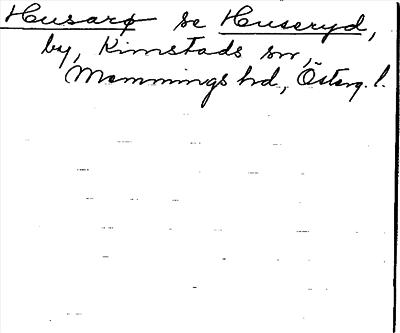 Husarp se Huseryd,
by, Kimstads sn,
Memmings hd, Österg. l.